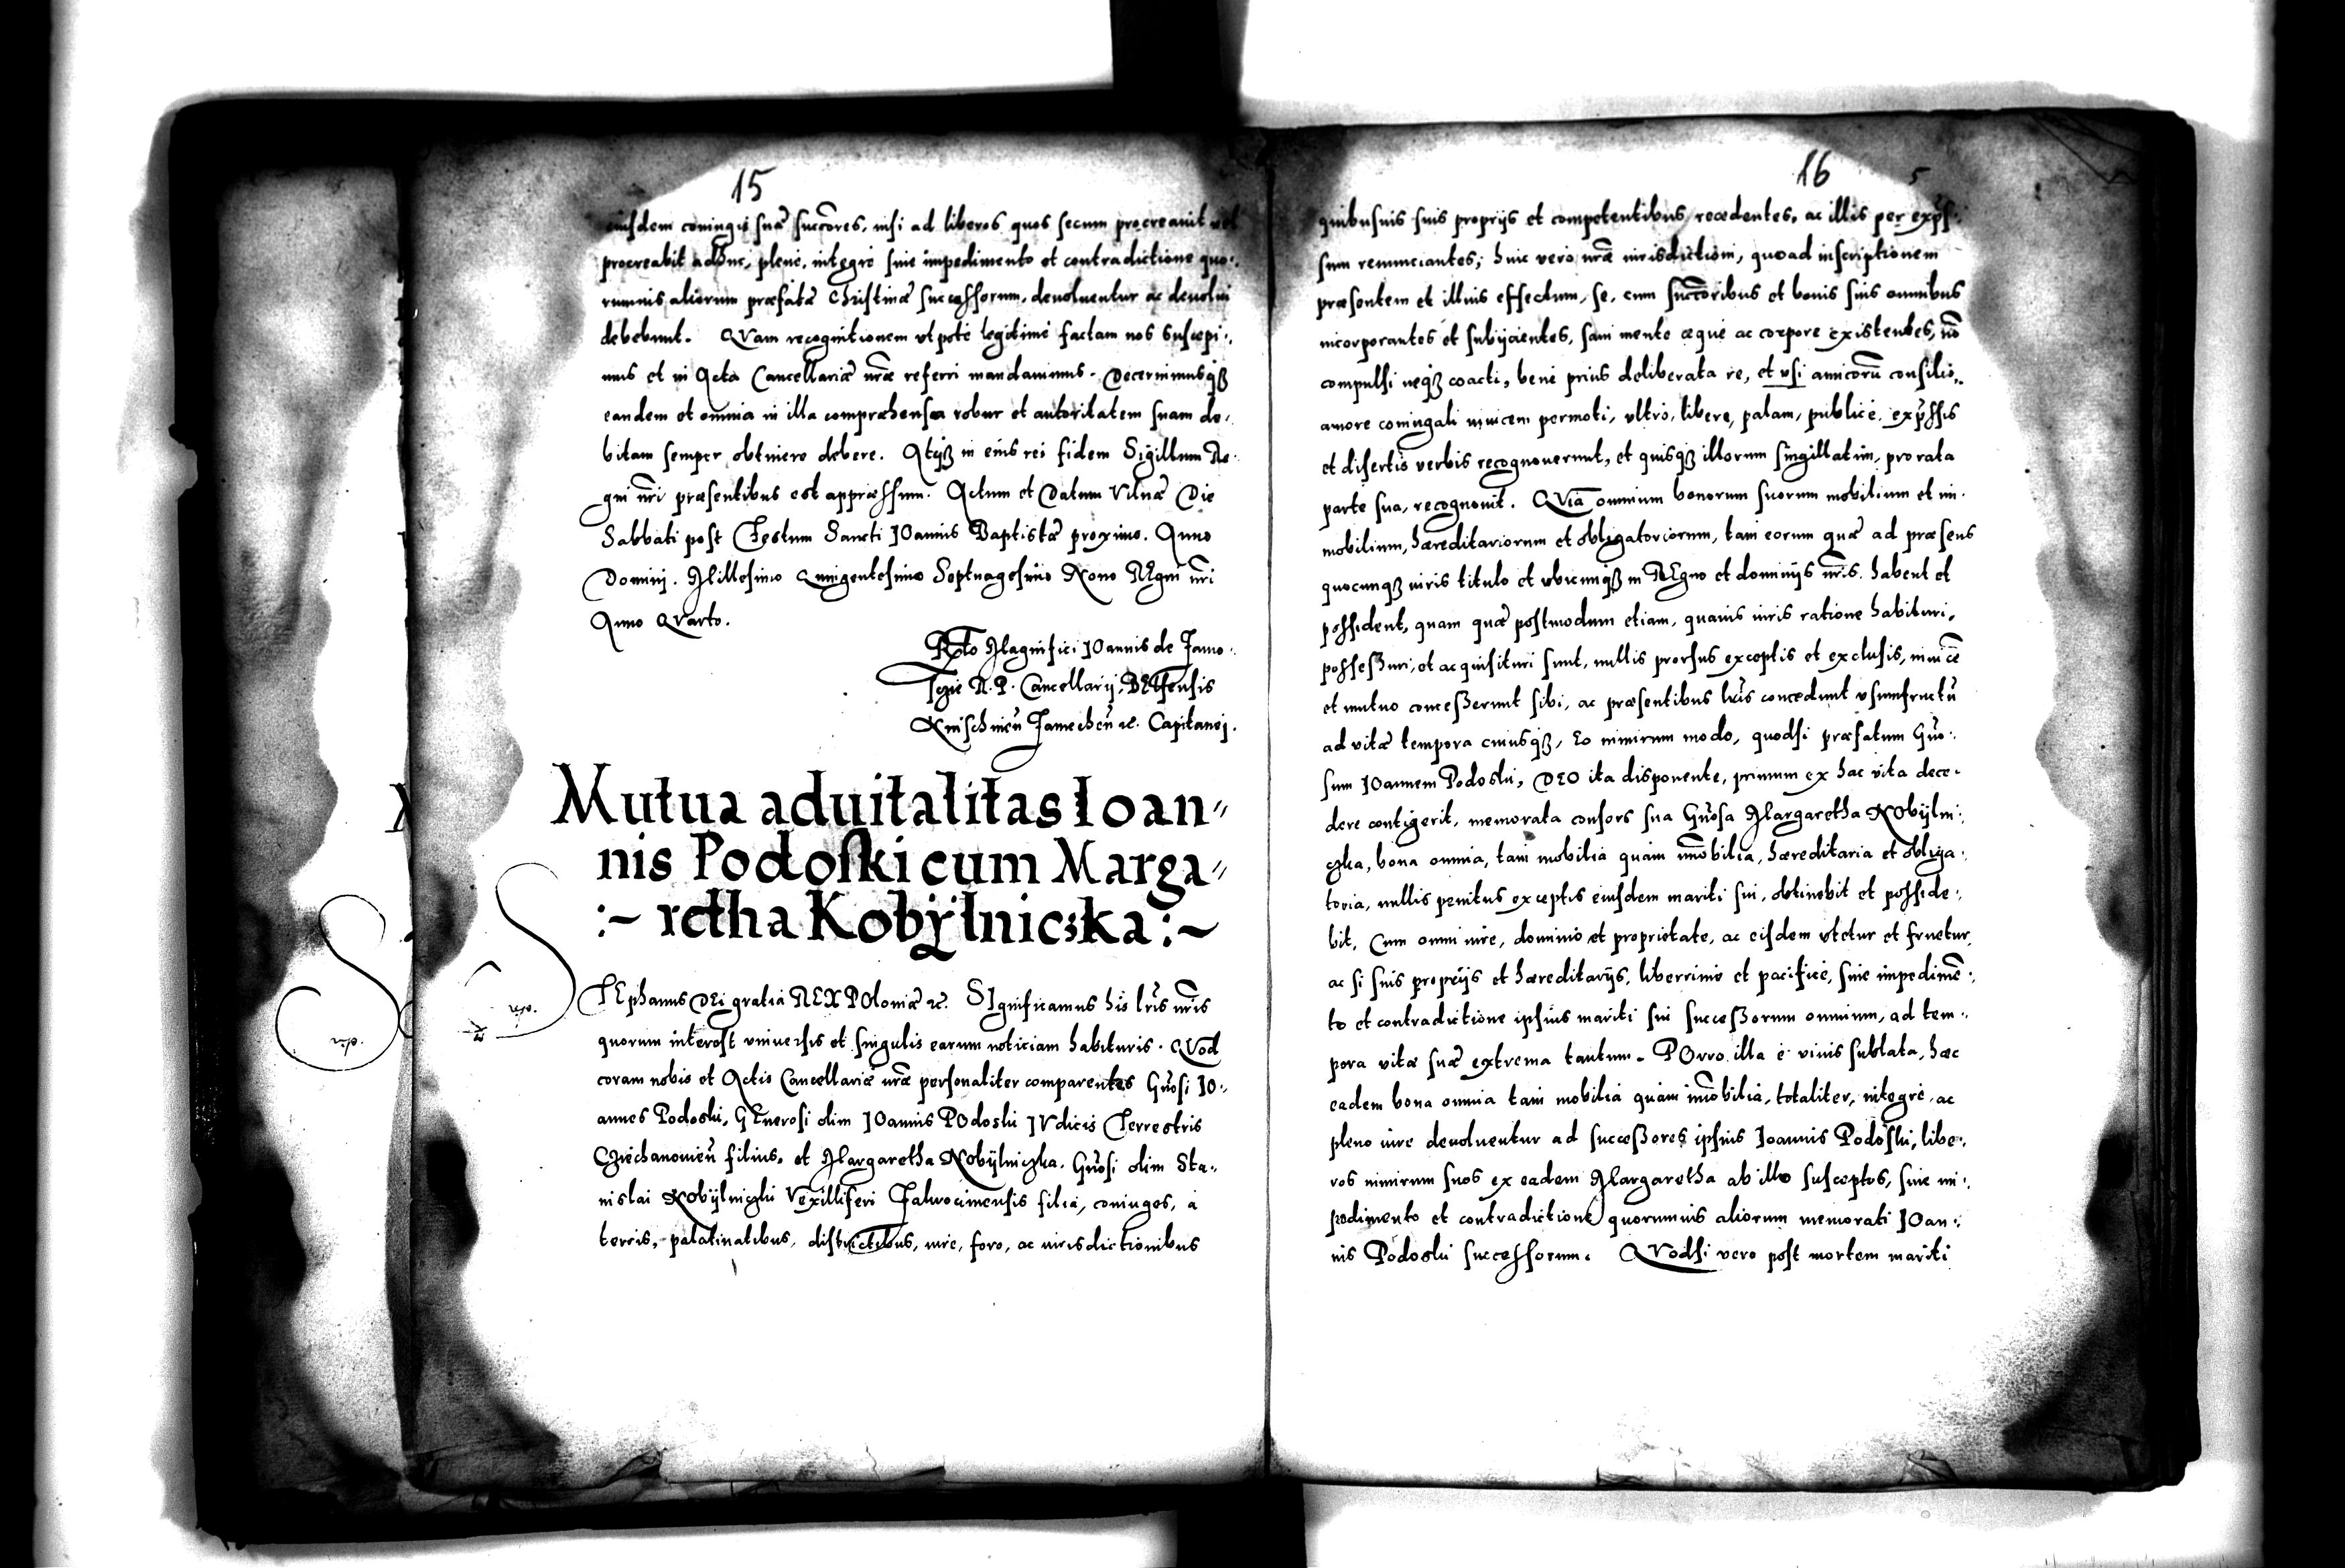 15
eiusdem coniugis suæ succ̃ores, nisi ad liberos quos secum procreauit vel
procreabit adhuc, plenè, integrè sine impedimento et contradictione quo:,
rumuis aliorum præfatæ Christinæ successorum, deuoluentur ac deuolui
debebunt. QVam recognitionem vtpote legitimè factam nos suscepi:,
mus et in Acta Cancellariæ nr̃æ referri mandauimus. Decernimusqꝫ
eandem et omnia in illa comprehensa robur et autoritatem suam de:,
bitam semper obtinere debere. Atqꝫ in eius rei fidem Sigillum Re:
gni nr̃i præsentibus est appressum. Actum et Datum Vilnæ Die
Sabbati post Festum Sancti IOannis Baptistæ proximo. Anno
Domini. Millesimo Quingentesimo Septuagesimo Nono REgni nr̃i
Anno QVarto.
Magnifici IOannis de Zamo:
R. P. Cancellarij, BElsensis
Knischineñ Zamecheñ ꝛc. Capitanej.
Mutua aduitalitas Ioan〃
nis Podoski cum Marga〃
:~ retha Kobÿlniczka :~
STEphanus DEi gratia REX POloniæ ꝛc. SIgnificamus his lr̃is nr̃is
quorum interest vniuersis et singulis earum noticiam habituris. QVod
coram nobis et Actis Cancellariæ nr̃æ personaliter comparentes Gñosi IO:,
annes Podoski, GEnerosi olim IOannis POdoski IVdicis Terrestris
Cziechanouieñ filius, et Margaretha Kobÿlniczka, Gñosi olim Sta:,
nislai Kobÿlniczki Vexilliferi filia, coniuges, à
terris, palatinatibus, districtibus, iure, foro, ac iurisdictionibus
16 5
quibusuis suis proprijs et competentibus recedentes, ac illis per exp̃s:,
sum renunciantes; huic vero nr̃æ iurisdictioni, quoad inscriptionem
præsentem et illius effectum, se, cum succ̃oribus et bonis suis omnibus
incorporantes et subijcientes, sani mente æquè ac corpore existentes, nõ
compulsi neqꝫ coacti, benè prius deliberata re, et vsi amicorũ consilio,
amore coniugali inuicem permoti, vltrò, liberè, palam, publicè, exp̃ssis
et disertis verbis recognouerunt, et quisqꝫ illorum singillatim, pro rata
parte sua, recognouit. QVia omnium bonorum suorum mobilium et im:
mobilium, hæreditariorum et obligatoriorum, tam eorum quæ ad præsens
quocunqꝫ iuris titulo et vbicunqꝫ in REgno et dominijs nr̃is habent et
possident, quam quæ postmodum etiam, quauis iuris ratione habituri,
possessuri, et acquisituri sunt, nullis prorsus exceptis et exclusis, inuicẽ
et mutuo concesserunt sibi, ac præsentibus lr̃is concedunt vsumfructũ
ad vitæ tempora cuiusqꝫ, Eo nimirum modo, quodsi præfatum Gño:
sum IOannem Podoski, DEO ita disponente, primum ex hac vita dece:
dere contigerit, memorata consors sua Gñosa Margaretha KObÿlni:,
czka, bona omnia, tam mobilia quàm im̃obilia, hæreditaria et obliga:,
toria, nullis penitus exceptis eiusdem mariti sui, obtinebit et posside:,
bit, Cum omni iure, dominio et proprietate, ac eisdem vtetur et fruetur,
ac si suis proprijs et hæreditarijs, liberrimè et pacificè, sine impedimẽ:,
to et contradictione ipsius mariti sui successorum omnium, ad tem:,
pora vitæ suæ extrema tantum. POrro illa è viuis sublata, hæc
eadem bona omnia tam mobilia quàm im̃obilia, totaliter, integrè, ac
pleno iure deuoluentur ad successores ipsius Ioannis Podoski, libe:,
ros nimirum suos ex eadem Margaretha ab illo susceptos, sine im:,
pedimento et contradictione quorumuis aliorum memorati IOan:,
nis Podoski successorum. QVodsi vero post mortem mariti